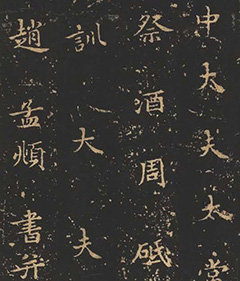 中大夫太常
祭酒周砥
訓大夫
趙孟頫書并